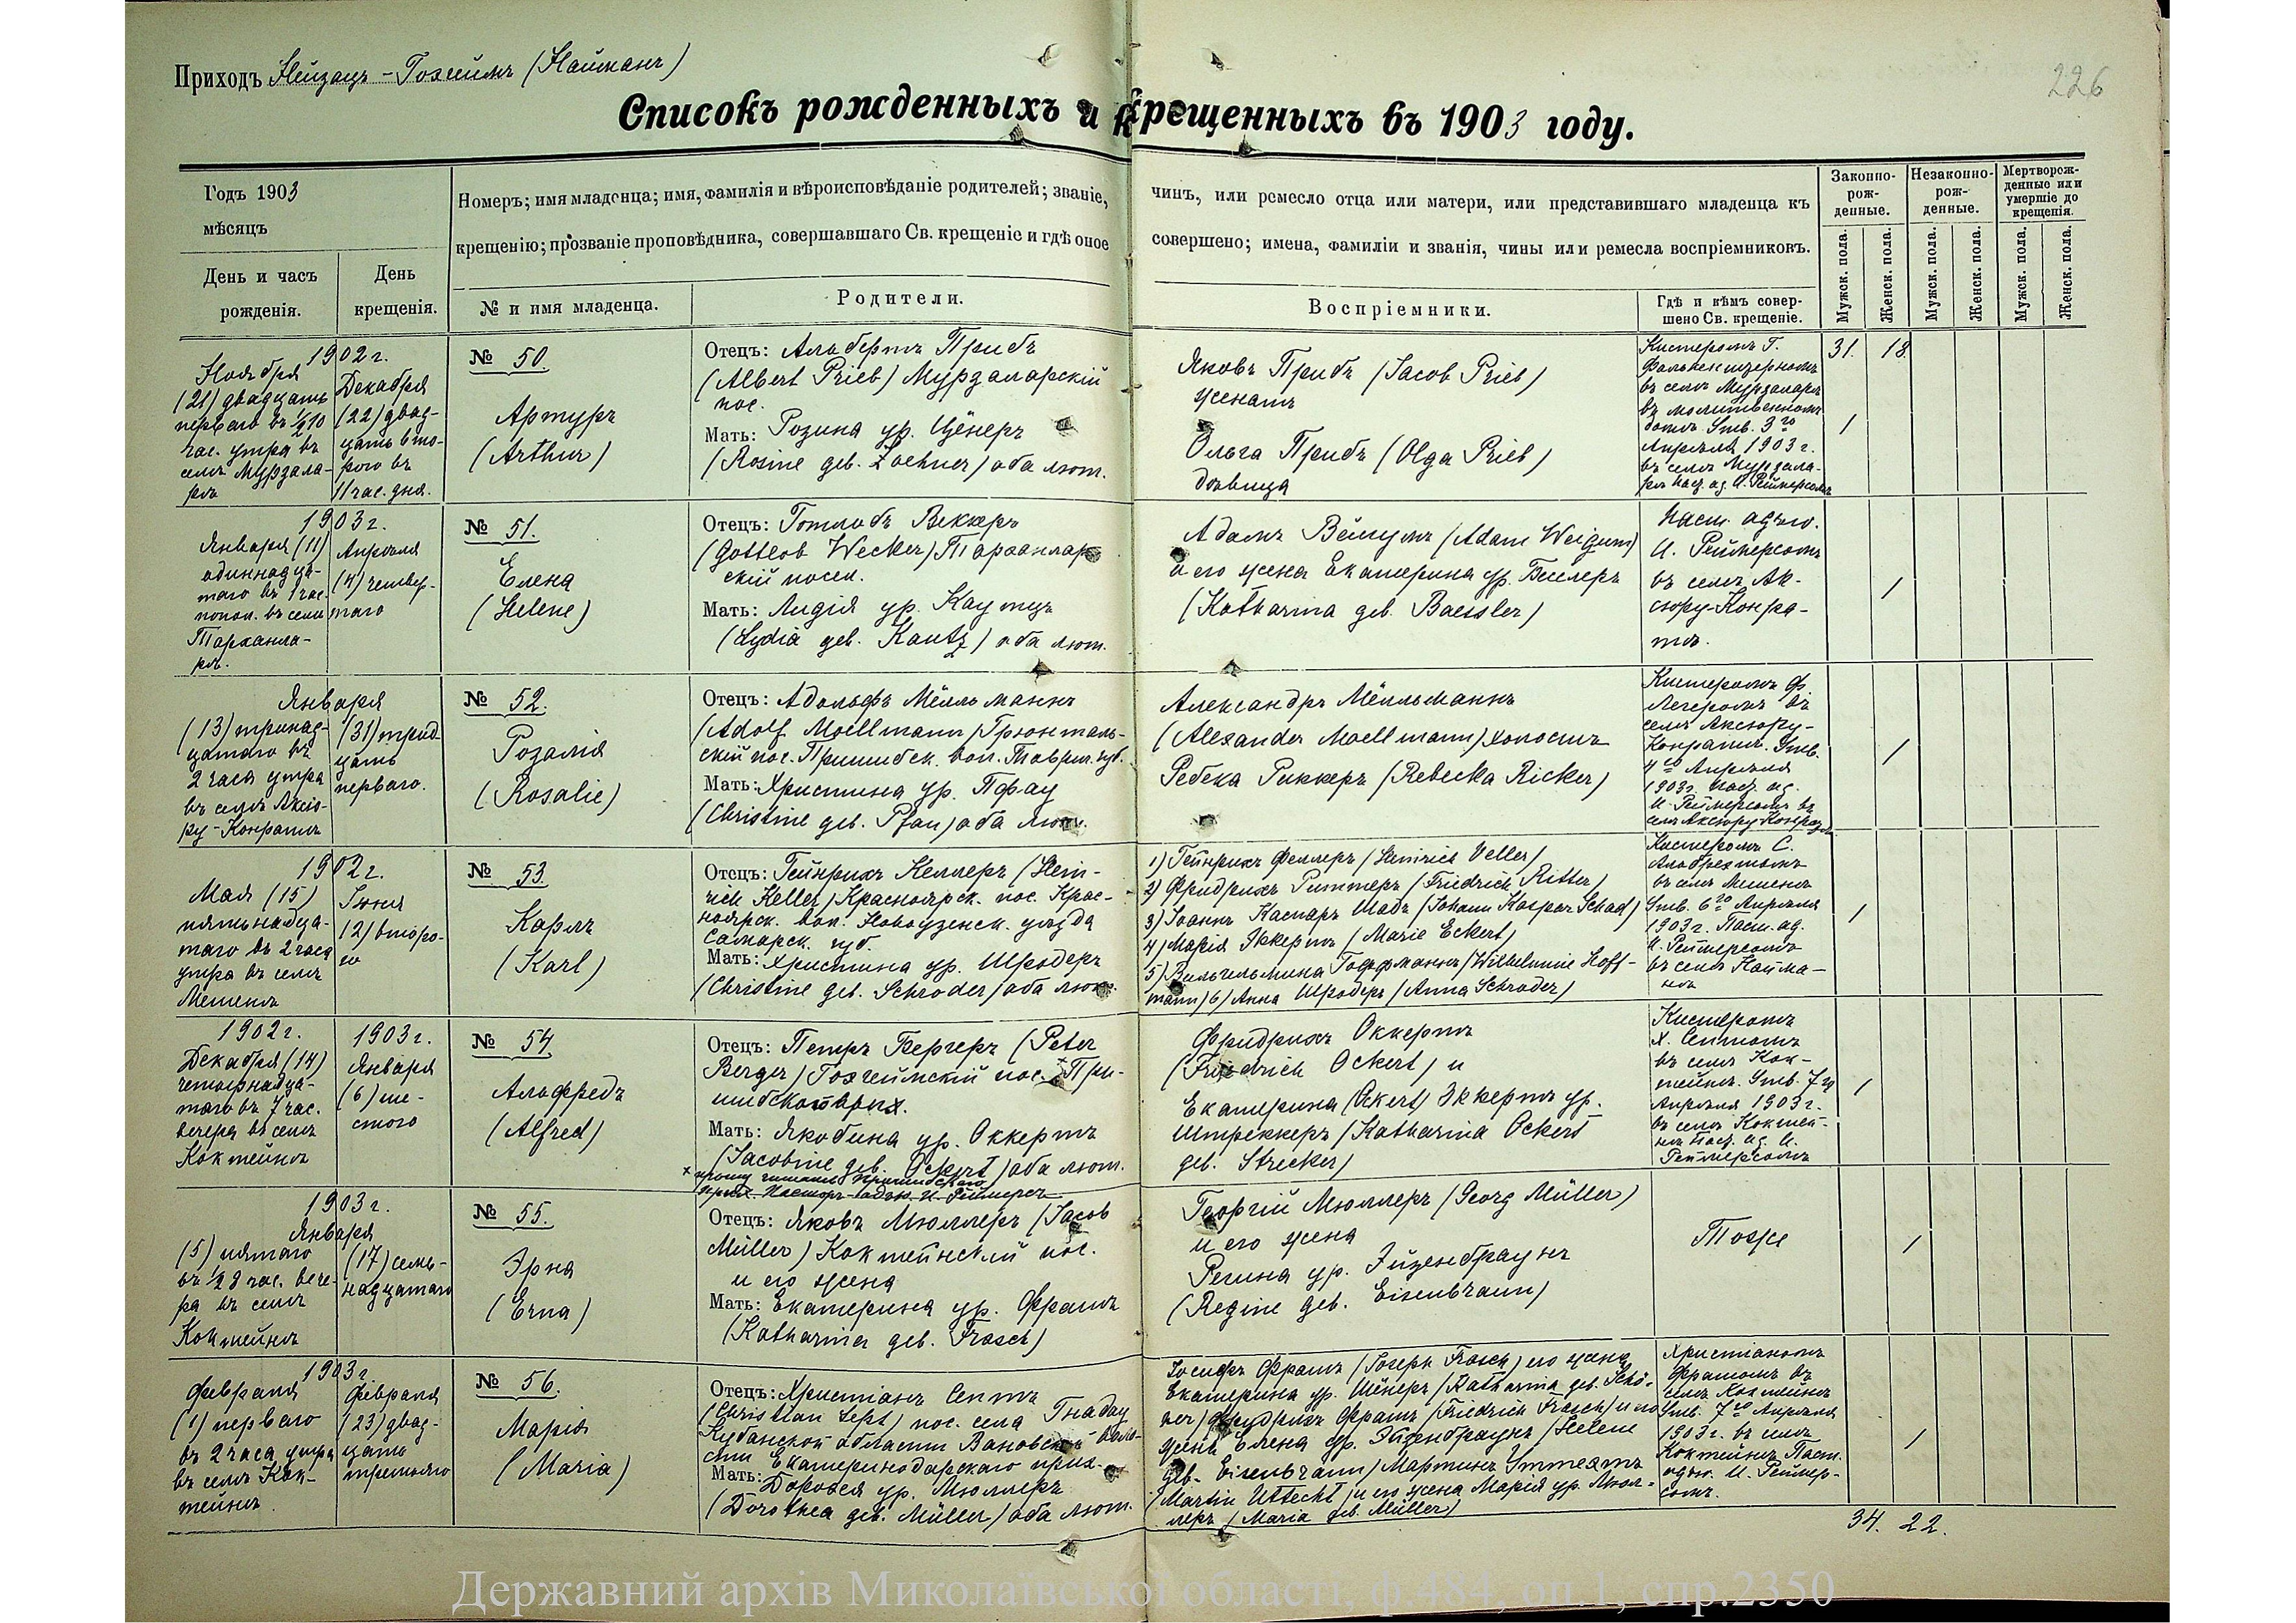 Приходъ Нейзацъ-Гохгеймъ (Найманъ)
226
Списокъ рожденныхъ и крещенныхъ въ 1903 году.
Годъ 1903
мѣсяцъ
День и часъ
рожденія.
День
крещенія.
Номеръ; имя младенца; имя, фамилія и вѣроисповѣданіе родителей; званіе,
крещенію; прозваніе проповѣдника, совершавшаго Св. крещеніе и гдѣ оное
№ и имя младенца.
Родители.
чинъ, или ремесло отца или матери, или представившаго младенца къ
совершено; имена, фамиліи и званія, чины или ремесла воспріемниковъ.
Воспріемники.
Гдѣ и кѣмъ совер-
шено Св. крещеніе.
Законно-
рож-
денные.
Незаконно-
рож-
денные.
Мертворож-
денные или
умершіе до
крещенія.
Мужск. пола.
Женск. пола.
Мужск. пола.
Женск. пола.
Мужск. пола.
Женск. пола.
1902 г.
Ноября
(21) двадцать
перваго въ ½10
час. утра въ
селѣ Мурзала-
рѣ
Декабря
(22) двад-
цать вто-
рого въ
11 час. дня.
№ 50.
Артуръ
(Arthur)
Отецъ: Альбертъ Прибъ
(Albert Prieb) Мурзаларскій
пос.
Мать: Розина ур. Цёнеръ
(Rosine geb. Zoehner) оба лют.
Яковъ Прибъ (Jacob Prieb)
женатъ
Ольга Прибъ (Olga Prieb)
дѣвица
Кистеромъ Г.
въ селѣ Мурзаларѣ
въ молитвенномъ
домѣ. Утв. 3го
Апрѣля 1903 г.
въ селѣ Мурзала-
рѣ Паст. ад. И. Реймерсомъ
31. 18
1
1903 г.
Января (11)
одиннадца-
таго въ 1 час.
попол. въ селѣ
Тарханла-
рѣ.
Апрѣля
(4) четвер-
таго
№ 51.
Елена
(Helene)
Отецъ: Готлобъ Веккеръ
(Gottlob Wecker) Тарханлар-
скій посел.
Мать: Лидія ур. Каутцъ
(Lydia geb. Kautz) оба лют.
Адамъ Вейгумъ (Adam Weigum)
и его жена Екатерина ур. Беслеръ
(Katharina geb. Baessler)
Паст. адъю.
И. Реймерсомъ
въ селѣ Ак-
сюру-Конра-
тѣ.
1
Января
(13) тринад-
цатаго въ
2 часа утра
въ селѣ Аксю-
ру-Конратѣ
(31) трид-
цать
перваго.
№ 52.
Розалія
(Rosalie)
Отецъ: Адольфъ Мёлльманнъ
(Adolf Moellmann) Грюнталь-
скій пос. Пришибск. вол. Таврич. губ.
Мать: Христина ур. Пфау
(Christine geb. Pfau) оба лют.
Александръ Мёлльманнъ
(Alexander Moellmann) холостъ
Ребека Риккеръ (Rebecka Ricker)
Кистеромъ Ф.
Легеромъ въ
селѣ Аксюру-
Конратѣ. Утв.
4го Апрѣля
1903 г. Паст. ад.
И. Реймерсомъ въ
селѣ Аксюру-Конратѣ
1
1902 г.
Мая (15)
пятьнадца-
таго въ 2 часа
утра въ селѣ
Мешенѣ
Іюня
(2) второ-
го
№ 53.
Карлъ
(Karl)
Отецъ: Гейнрихъ Келлеръ (Hein-
rich Keller) Красноярск. пос. Крас-
ноярск. вол. Новоузенск. уѣзда
Самарск. губ.
Мать: Христина ур. Шрёдеръ
(Christine geb. Schröder) оба лют.
1) Гейнрихъ Феллеръ (Heinrich Veller)
2) Фридрихъ Риттеръ (Friedrich Ritter)
3) Іоаннъ Каспаръ Шадъ (Johann Kaspar Schad)
4) Марія Эккертъ (Marie Eckert)
5) Вильгельмина Гоффманнъ (Wilhelmine Hoff-
mann) 6) Анна Шрёдеръ (Anna Schröder)
Кистеромъ С.
Альбрехтомъ
въ селѣ Мешенѣ
Утв. 6го Апрѣля
1903 г. Паст. ад.
И. Реймерсомъ
въ селѣ Найма-
нѣ
1
1902 г.
Декабря (14)
четырнадца-
таго въ 7 час.
вечера въ селѣ
Коктейнѣ
1903 г.
Января
(6) ше-
стого
№ 54
Альфредъ
(Alfred)
Отецъ: Петръ Бергеръ (Peter
Berger) Гохгеймскій пос. × При-
шибской
Мать: Якобина ур. Оккертъ
(Jacobine geb. Ockert) оба лют.
× прошу читать Пришибского
Пасторъ-адъю. И. Реймерсъ
Фридрихъ Оккертъ
(Friedrich Ockert) и
Екатерина (Ockert) Эккертъ ур.
Штреккеръ (Katharina Ockert
geb. Strecker)
Кистеромъ
Х. Септомъ
въ селѣ Кок-
тейнѣ. Утв. 7го
Апрѣля 1903 г.
въ селѣ Коктей-
нѣ Паст. ад. И.
Реймерсомъ
1
1903 г.
Января
(5) пятаго
въ ½8 час. вече-
ра въ селѣ
Коктейнѣ
(17) семь-
надцатаго
№ 55.
Эрна
(Erna)
Отецъ: Яковъ Мюллеръ (Jacob
Müller) Коктейнскій пос.
и его жена
Мать: Екатерина ур. Фрашъ
(Katharina geb. Frasch)
Георгій Мюллеръ (Georg Müller)
и его жена
Регина ур. Эйзенбраунъ
(Regine geb. Eisenbraun)
Тоже
1
1903 г.
Февраля
(1) перваго
въ 2 часа утра
въ селѣ Кок-
тейнѣ.
Февраля
(23) двад-
цать
третьяго
№ 56.
Марія
(Maria)
Отецъ: Христіанъ Септъ
(Christian Sept) пос. села Гнадау
Кубанской области Вановской воло-
сти Екатеринодарскаго прих.
Мать: Доротея ур. Мюллеръ
(Dorothea geb. Müller) оба лют.
Іосифъ Фрашъ (Joseph Frasch) его жена
Екатерина ур. Шёнеръ (Katharina geb. Schö-
ner) Фридрихъ Фрашъ (Friedrich Frasch) и его
жена Елена ур. Эйзенбраунъ (Helene
geb. Eisenbraun) Мартинъ Уттехтъ
(Martin Uttecht) и его жена Марія ур. Мюл-
леръ (Maria geb. Müller)
Христіаномъ
Фрашомъ въ
селѣ Коктейнѣ
Утв. 7го Апрѣля
1903 г. въ селѣ
Коктейнѣ Паст.
адъю. И. Реймер-
сомъ.
1
34. 22.
Державний архів Миколаївської області, ф.484, оп.1, спр.2350